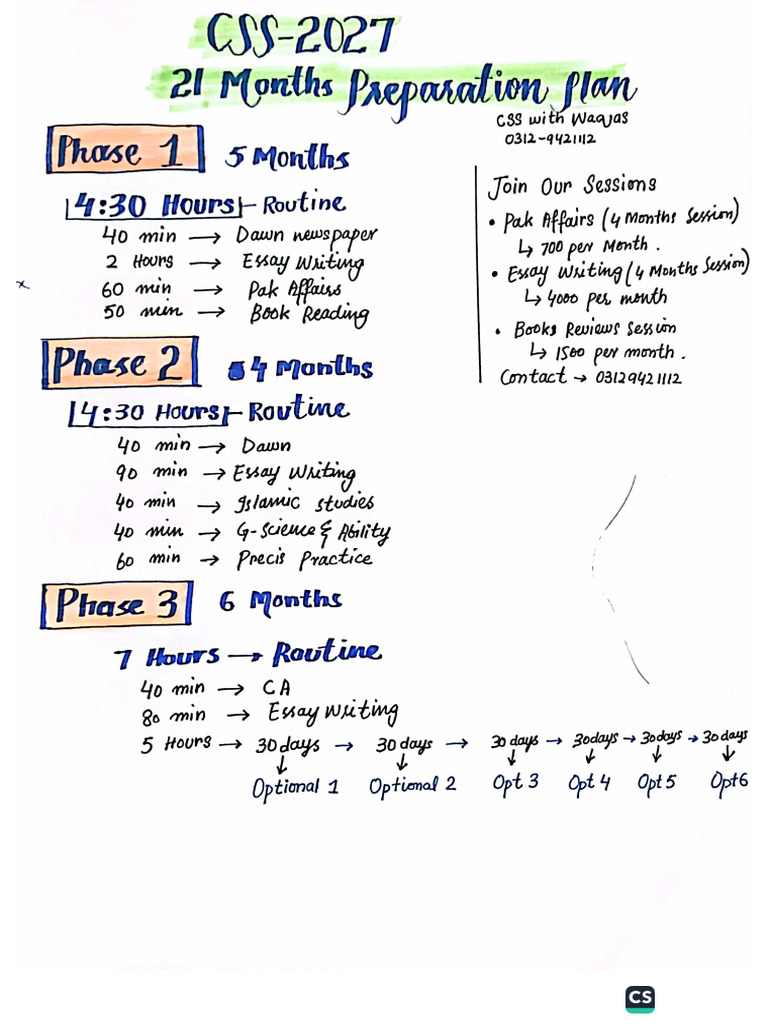 CSS-2027
21 Months Preparation Plan
CSS with Waqas
0312-9421112
Phase 1 5 Months
4:30 Hours - Routine
40 min → Dawn newspaper
2 Hours → Essay Writing
60 min → Pak Affairs
50 min → Book Reading
Join Our Sessions
• Pak Affairs (4 Months Session)
↳ 700 per Month.
• Essay Writing (4 Months Session)
↳ 4000 per month
• Books Reviews Session
↳ 1500 per month.
Contact → 03129421112
Phase 2 4 Months
4:30 Hours - Routine
40 min → Dawn
90 min → Essay Writing
40 min → Islamic studies
40 min → G-Science & Ability
60 min → Precis Practice
Phase 3 6 Months
7 Hours → Routine
40 min → CA
80 min → Essay Writing
5 Hours → 30 days → 30 days → 30 days → 30days → 30days → 30days
Optional 1 Optional 2 Opt 3 Opt 4 Opt 5 Opt6
CS